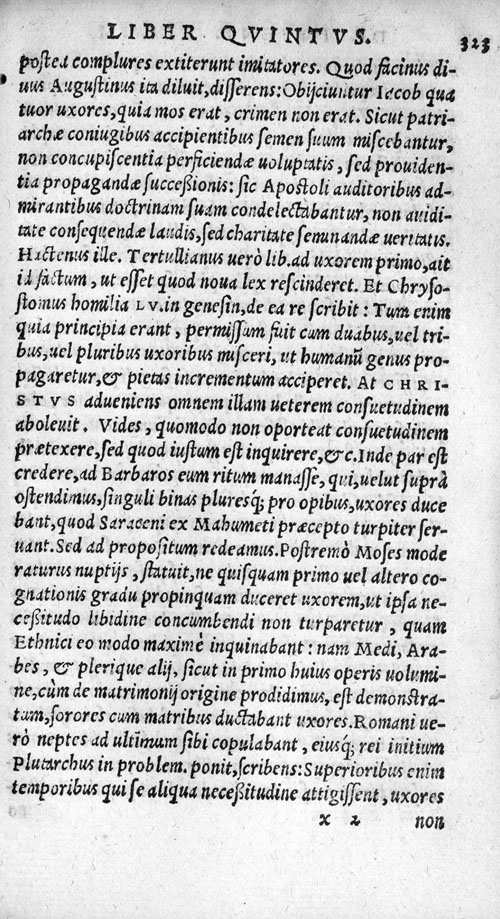 LIBER QVINTVS. 323
postea complures extiterunt imitatores. Quod facinus di-
uus Augustinus ita diluit, disserens: Obijciuntur Iacob qua
tuor uxores, quia mos erat, crimen non erat. Sicut patri-
archæ coniugibus accipientibus semen suum miscebantur,
non concupiscentia perficiendæ uoluptatis, sed prouiden-
tia propagandæ successionis: sic Apostoli auditoribus ad-
mirantibus doctrinam suam condelectabantur, non auidi-
tate consequendæ laudis, sed charitate seminandæ ueritatis.
Hactenus ille. Tertullianus uerò lib. ad uxorem primo, ait
id factum, ut esset quod noua lex rescinderet. Et Chryso-
stomus homilia LV. in genesin, de ea re scribit: Tum enim
quia principia erant, permissum fuit cum duabus, uel tri-
bus, uel pluribus uxoribus misceri, ut humanũ genus pro-
pagaretur, & pietas incrementum acciperet. At CHRI-
STVS adueniens omnem illam ueterem consuetudinem
aboleuit. Vides, quomodo non oporteat consuetudinem
prætexere, sed quod iustum est inquirere, &c. Inde par est
credere, ad Barbaros eum ritum manasse, qui, uelut suprà
ostendimus, singuli binas pluresq́; pro opibus, uxores duce
bant, quod Saraceni ex Mahumeti præcepto turpiter ser-
uant. Sed ad propositum redeamus. Postremò Moses mode
raturus nuptijs, statuit, ne quisquam primo uel altero co-
gnationis gradu propinquam duceret uxorem, ut ipsa ne-
cessitudo libidine concumbendi non turparetur, quam
Ethnici eo modo maximè inquinabant: nam Medi, Ara-
bes, & plerique alij, sicut in primo huius operis uolumi-
ne, cùm de matrimonij origine prodidimus, est demonstra-
tum, sorores cum matribus ductabant uxores. Romani ue-
rò neptes ad ultimum sibi copulabant, eiusq́; rei initium
Plutarchus in problem. ponit, scribens: Superioribus enim
temporibus qui se aliqua necessitudine attigissent, uxores
x 2 non